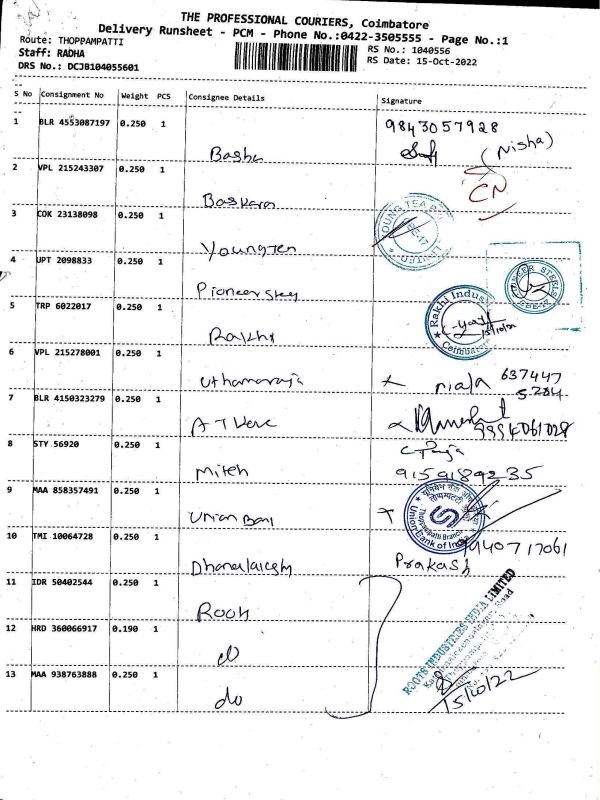 THE PROFESSIONAL COURIERS, Coimbatore
Delivery Runsheet - PCM - Phone No.:0422-3505555 - Page No.:1
Route: THOPPAMPATTI
Staff: RADHA
DRS No.: DCJB104055601
RS No.: 1040556
RS Date: 15-Oct-2022
S No Consignment No Weight PCS Consignee Details Signature
1 BLR 4553087197 0.250 1 9843057928
Basha (Nisha)
2 VPL 215243307 0.250 1 CN
Baskaran
3 COK 23138098 0.250 1
Young Ten
4 UPT 2098833 0.250 1
Pioneer Steej
5 TRP 6022017 0.250 1 Rakhi Indus
Rakhi Coimbatore
6 VPL 215278001 0.250 1
Uthamaraja mala 637447
7 BLR 4150323279 0.250 1
9994061028
8 STY 56920 0.250 1
Mitesh 9159189235
9 MAA 858357491 0.250 1
Union Ban Union Bank of India Thoppampatti Branch
10 TMI 10064728 0.250 1 9940717061
Dhanalakshmi Prakash
11 IDR 50402544 0.250 1
Rooh
12 HRD 360066917 0.190 1 ROOTS INDUSTRIES INDIA LIMITED
do
13 MAA 938763888 0.250 1
do 15/10/22